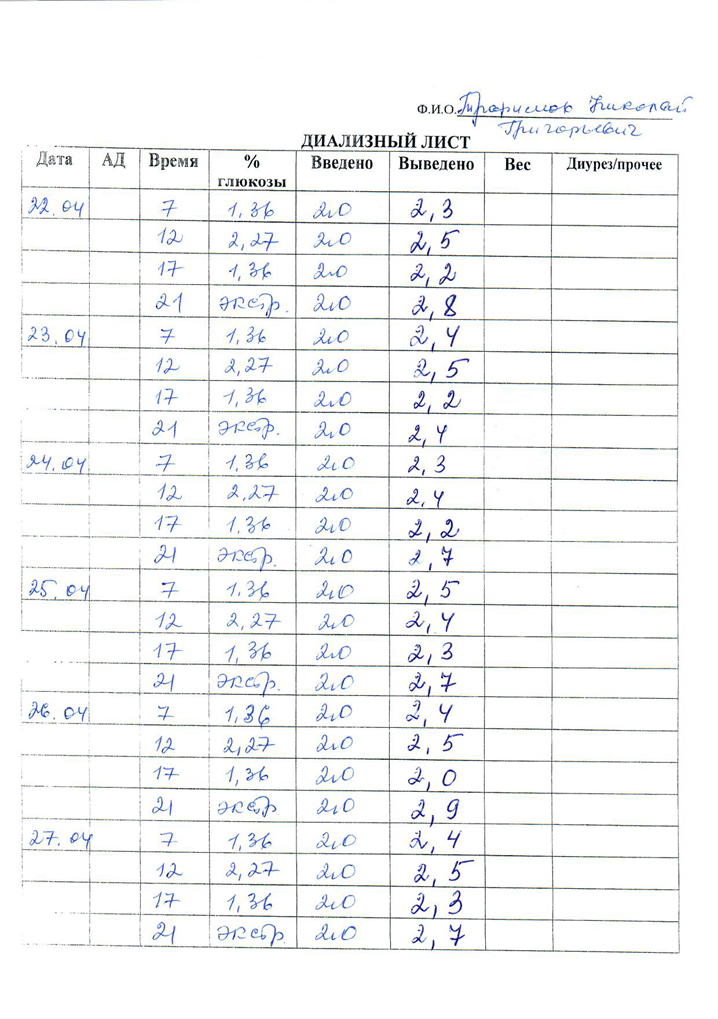 Ф.И.О. Николай
Григорьевич
ДИАЛИЗНЫЙ ЛИСТ
Дата АД Время % глюкозы Введено Выведено Вес Диурез/прочее
22.04 7 1,36 2.0 2,3
12 2,27 2.0 2,5
17 1,36 2.0 2,2
21 экстр. 2.0 2,8
23.04 7 1,36 2.0 2,4
12 2,27 2.0 2,5
17 1,36 2.0 2,2
21 экстр. 2.0 2,4
24.04 7 1,36 2.0 2,3
12 2,27 2.0 2,4
17 1,36 2.0 2,2
21 экстр. 2.0 2,7
25.04 7 1,36 2.0 2,5
12 2,27 2.0 2,4
17 1,36 2.0 2,3
21 экстр. 2.0 2,7
26.04 7 1,36 2.0 2,4
12 2,27 2.0 2,5
17 1,36 2.0 2,0
21 экстр. 2.0 2,9
27.04 7 1,36 2.0 2,4
12 2,27 2.0 2,5
17 1,36 2.0 2,3
21 экстр. 2.0 2,7